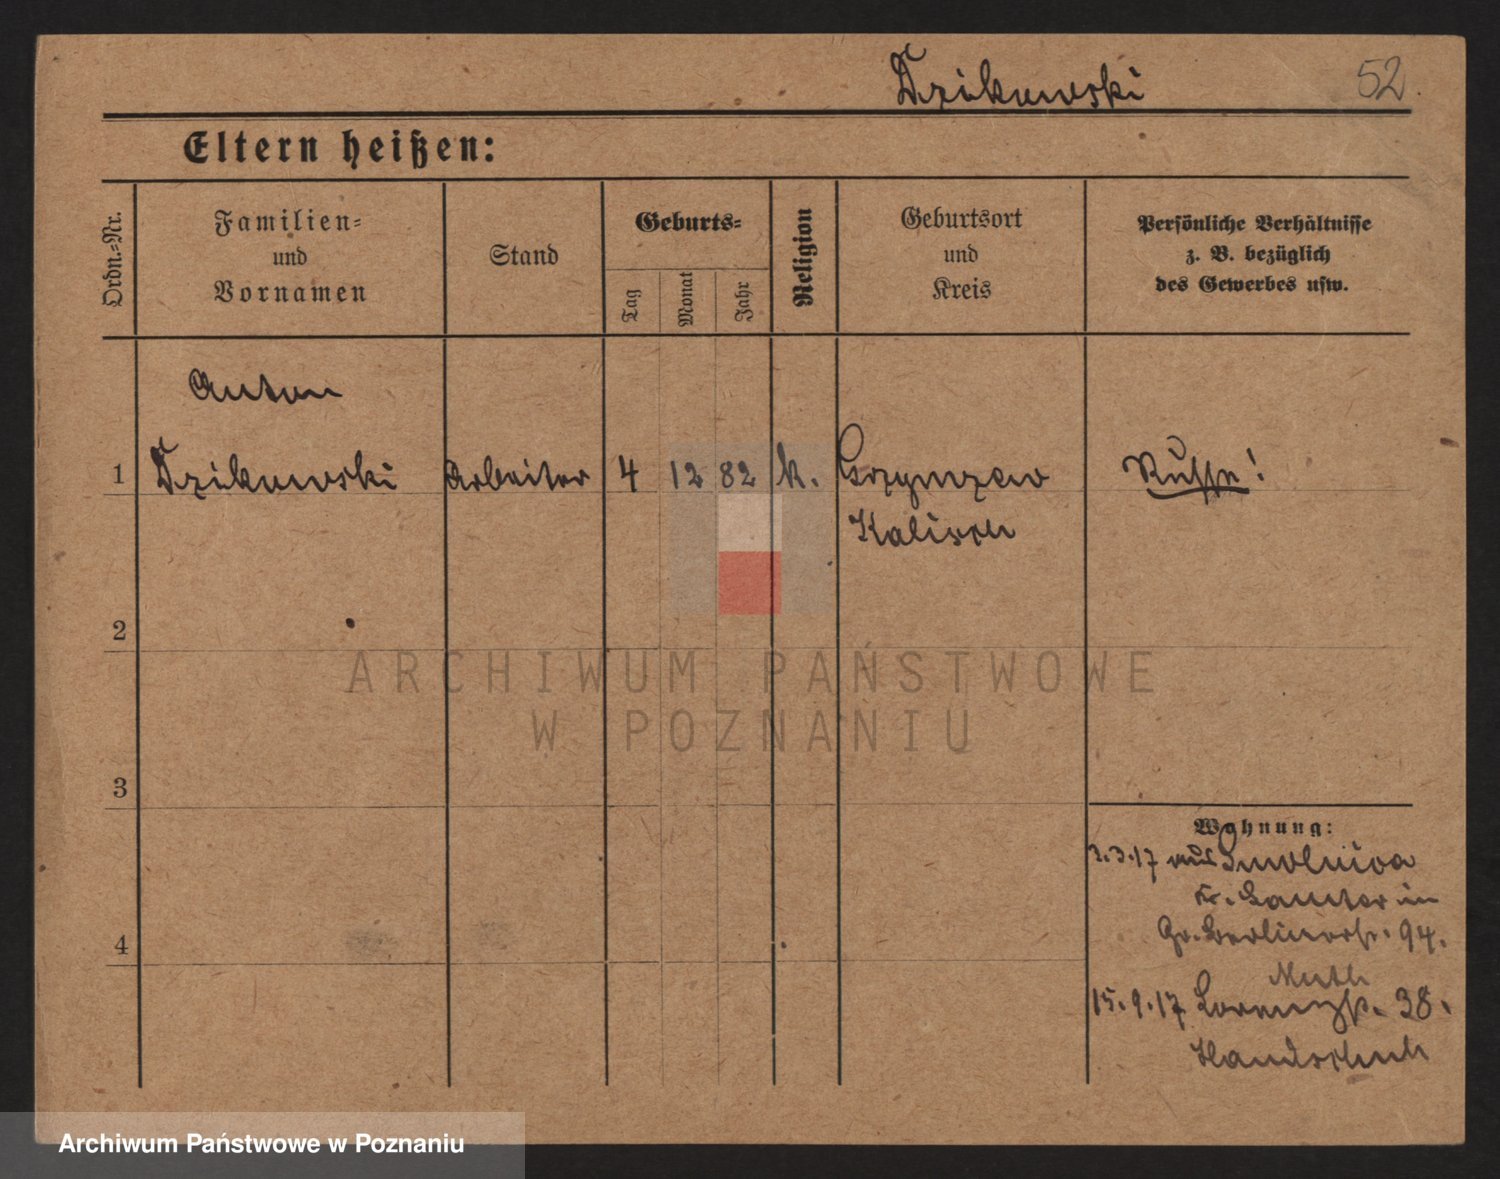 Dzikowski 52.
Eltern heißen:
Ordn.=Nr.
Familien=
und
Vornamen
Stand
Geburts=
Tag
Monat
Jahr
Religion
Geburtsort
und
Kreis
Persönliche Verhältnisse
z. B. bezüglich
des Gewerbes usw.
Anton
1 Dzikowski Arbeiter 4 12 82 k. Grzymzew Russe!
Kalisch
2
ARCHIWUM PAŃSTWOWE
W POZNANIU
3
Wohnung:
3.17 aus
Kr. Samter in
Gr. Berlinerstr. 94.
Muth
15.9.17 38.
Handschuh
4
Archiwum Państwowe w Poznaniu